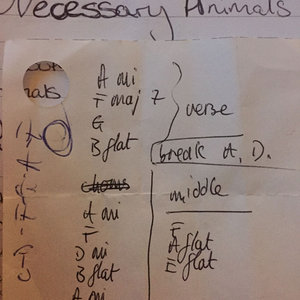 Necessary Animals
A mi
F maj 7
G
B flat
verse
break A, D.
chorus
A mi
F
D mi
B flat
A mi
middle
F
A flat
E flat